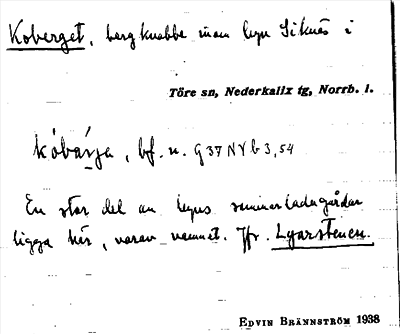 Koberget, bergknabbe inom byn Siknäs i
Töre sn, Nederkalix tg, Norrb. l.
kóbárja, bf. n. G37NVb3,54
En stor del av byns sommarladugårdar
ligga här, varav namnet. Jfr. Lyarstenen.
EDVIN BRÄNNSTRÖM 1938